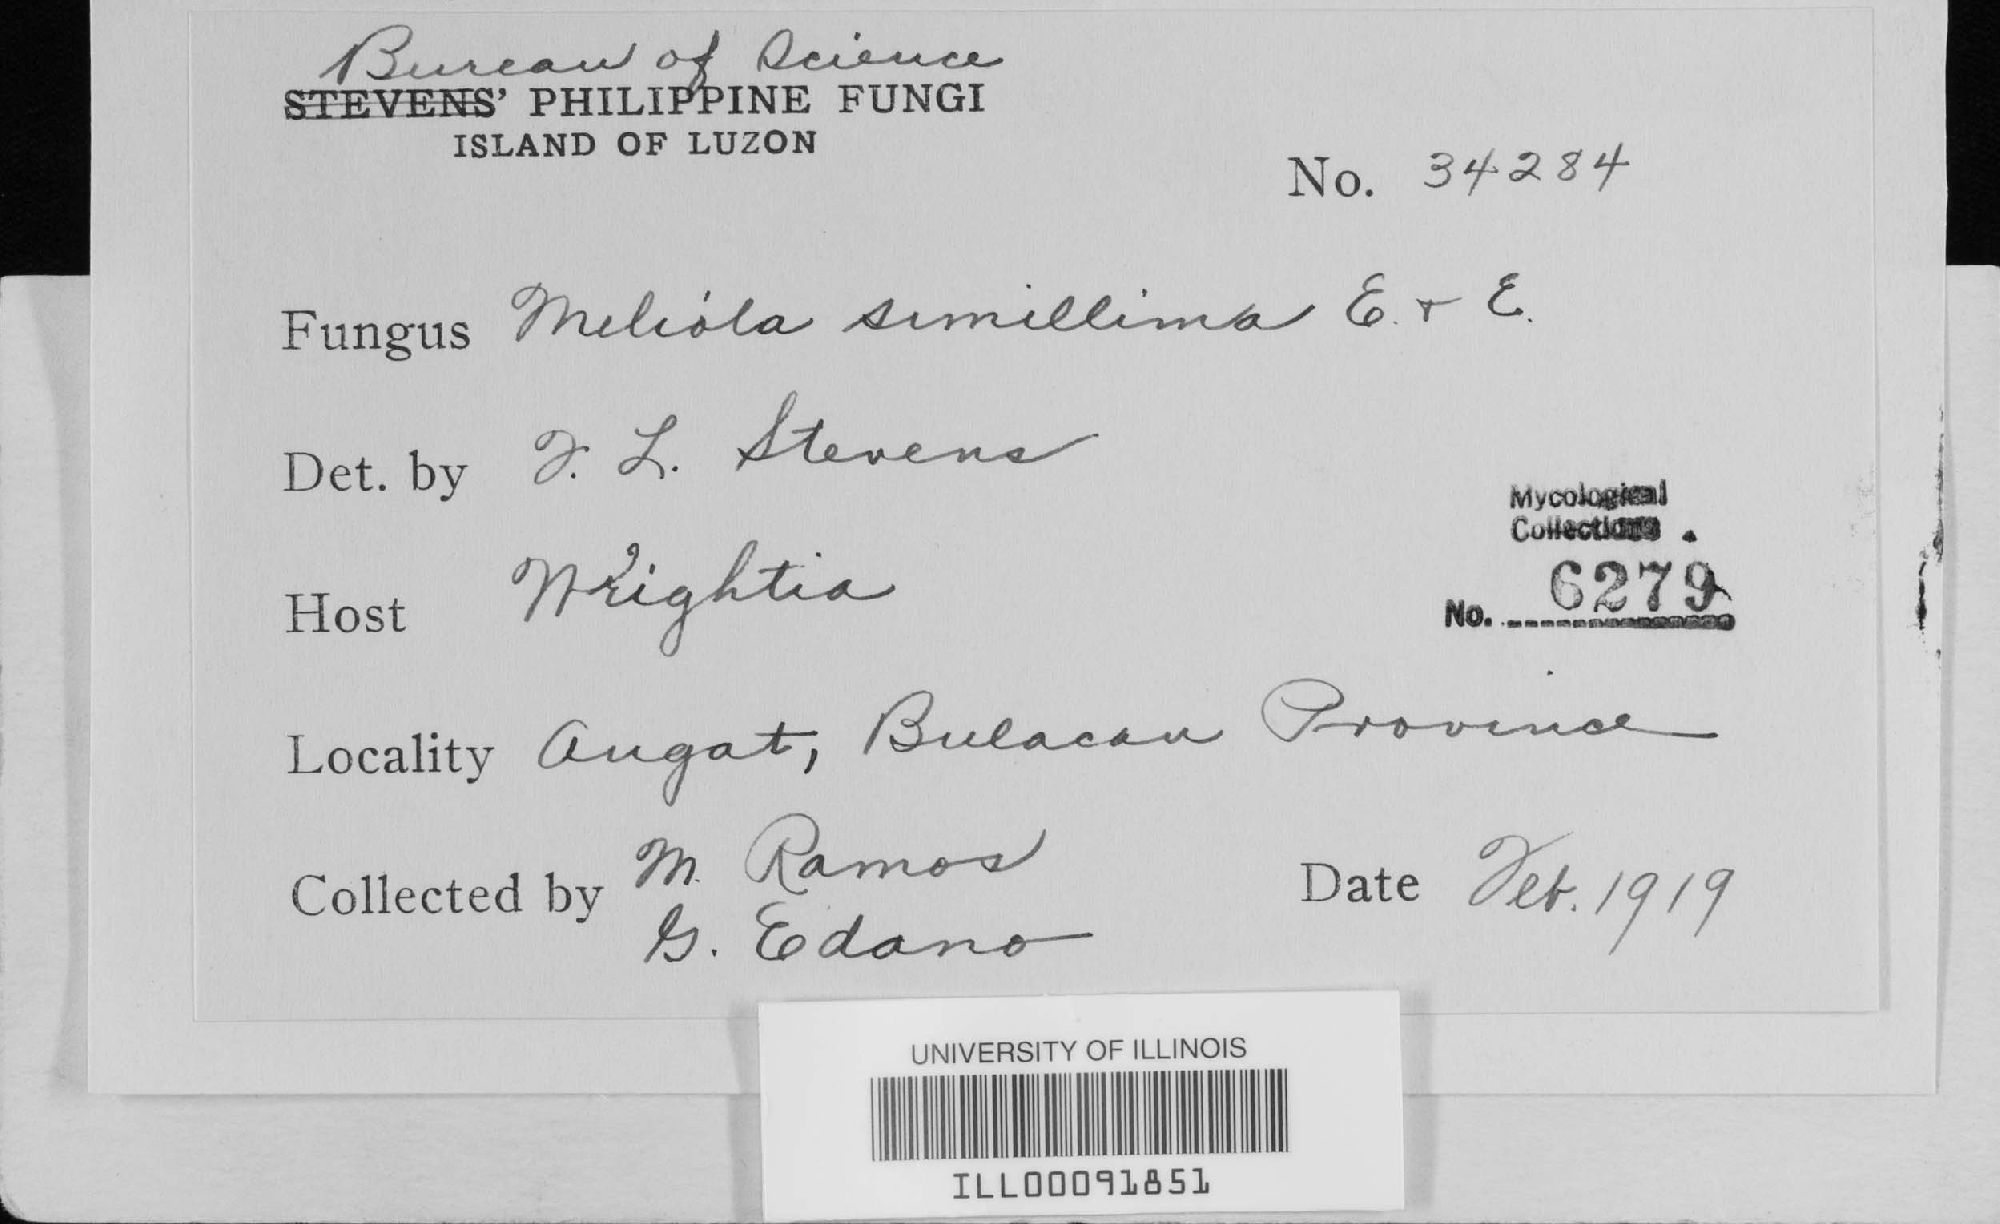 Bureau of Science
STEVENS' PHILIPPINE FUNGI
ISLAND OF LUZON
No. 34284
Fungus Meliola simillima E. + E.
Det. by F. L. Stevens
Mycological
Collections
No. 6279
Host Wrightia
Locality Angat, Bulacan Province
Collected by M. Ramos
G. Edano
Date Feb. 1919
UNIVERSITY OF ILLINOIS
ILL00091851